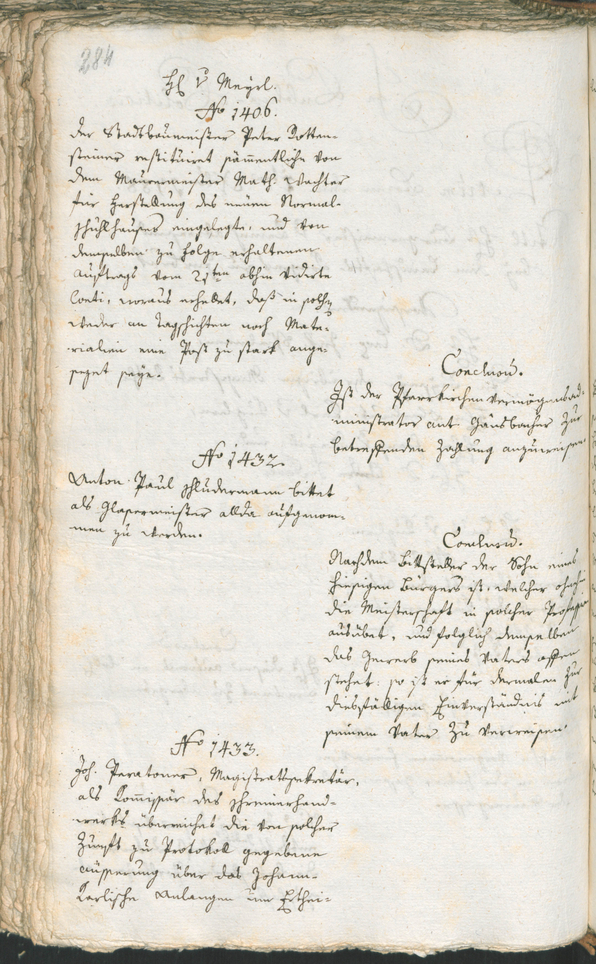 284
H. v. Mayrl.
No 1406.
Der Stadtbaumeister Peter Dotten-
steiner restituiret sämmentliche von
dem Maurermeister Math. Wachter
für Herstellung des neuen Normal-
schuhlhauses eingelegte, und von
demselben zu folge erhaltenen
Auftrags vom 21ten abhin vidirte
Conti, woraus erhellet, daß in solchen
weder an Tagschichten noch Mate-
rialien eine Post zu stark ange-
sezet seye.
Conclusu.
Ist der Pfarrkirchen Vermögensad-
ministrator ant. Gänsbacher zur
betreffenden Zahlung anzuweisen
No 1432.
Anton Paul Schludermann bittet
als Glasermeister allda aufgenom-
men zu werden.
Conclusu.
Nachdem Bittsteller der Sohn eines
hiesigen Bürgers ist, welcher ohnehin
die Meisterschaft in solcher Profession
ausübet, und folglich demselben
das Gewerb seines Vaters offen
stehet: so ist er für dermalen zur
diesfälligen Einverständnis mit
seinem Vater zu verweisen.
No 1433.
Joh. Peratoner, Magistratssekretär,
als Kommissär des Schreinerhand-
werks überreichet die von solcher
Zunft zu Protokoll gegebene
Äusserung über das
Anlangen um Erthei-